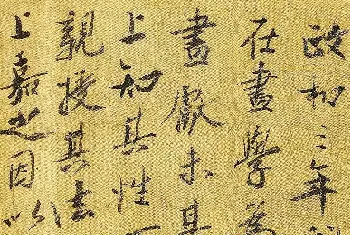 政和三年
在畫學為
畫獻未甚
上知其性
親授其法
上嘉之因以